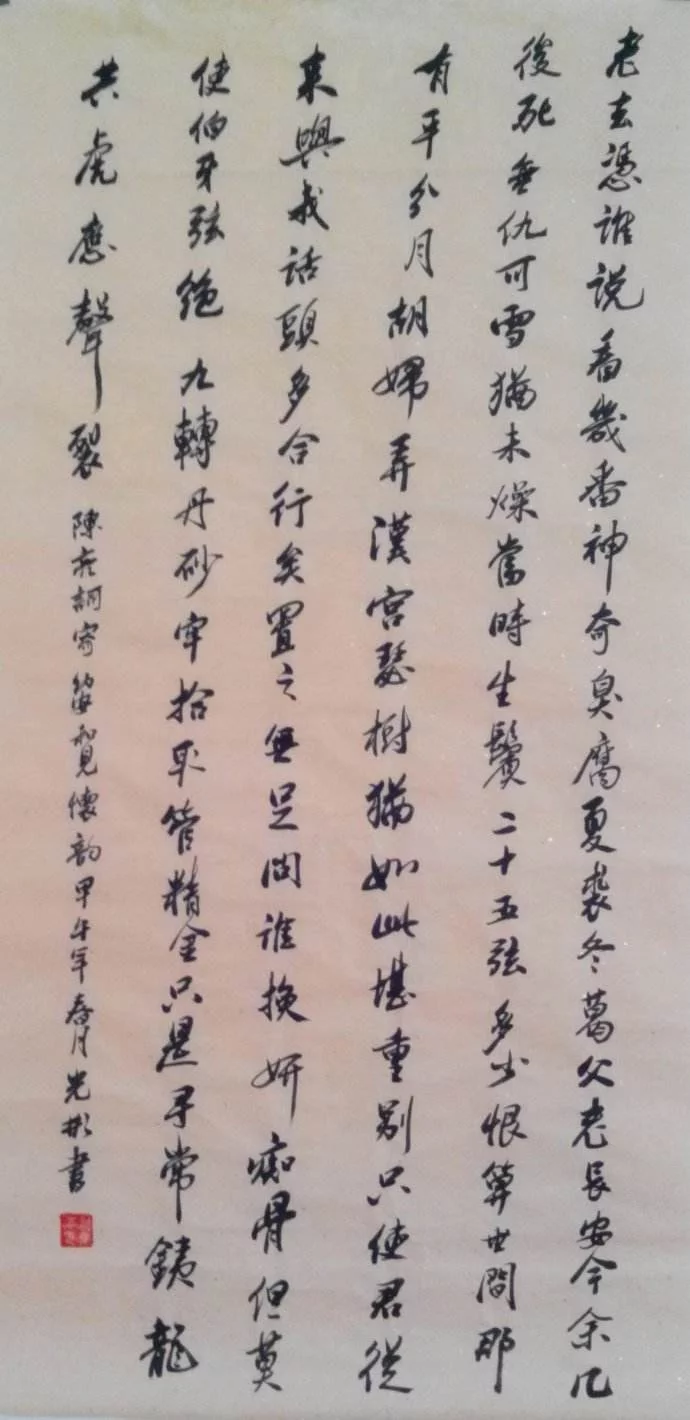 老去憑誰説看幾番神奇臭腐夏裘冬葛父老長安今余几
後死無仇可雪猶未燥當時生鬢二十五弦多少恨算世間那
有平分月胡婦弄漢宮瑟樹猶如此堪重别只使君從
來與我話頭多合行矣置之無足問誰換妍痴骨但莫
使伯牙弦絶九轉丹砂牢拾取管精金只是尋常銕龍
共虎應聲裂 陳亮詞寄幼安和見懷韵甲午年春月光彬書